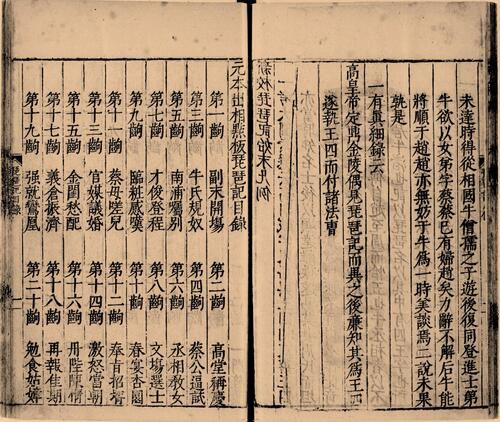 未達時得從相國牛僧孺之子遊後復同登進士第
牛欲以女弟字蔡蔡已有婦趙矣力辭不解后牛能
將順于趙趙亦無妨于牛爲一時美談焉二說未果
孰是
一有眞細錄云
高皇帝定與金陵偶見琵琶記而異之後廉知其爲王四
遂執王四而付諸法曹
新校琵琶記始末凡例
元本出相點板琵琶記目錄
第一齣 副末開場 第二齣 高堂稱慶
第三齣 牛氏規奴 第四齣 蔡公逼試
第五齣 南浦囑別 第六齣 丞相教女
第七齣 才俊登程 第八齣 文場選士
第九齣 臨粧感嘆 第十齣 春宴杏園
第十一齣 蔡母嗟兒 第十二齣 奉旨招壻
第十三齣 官媒議婚 第十四齣 激怒當朝
第十五齣 金閨愁配 第十六齣 丹陛陳情
第十七齣 義倉振濟 第十八齣 再報佳期
第十九齣 强就鸞凰 第二十齣 勉食姑嫜